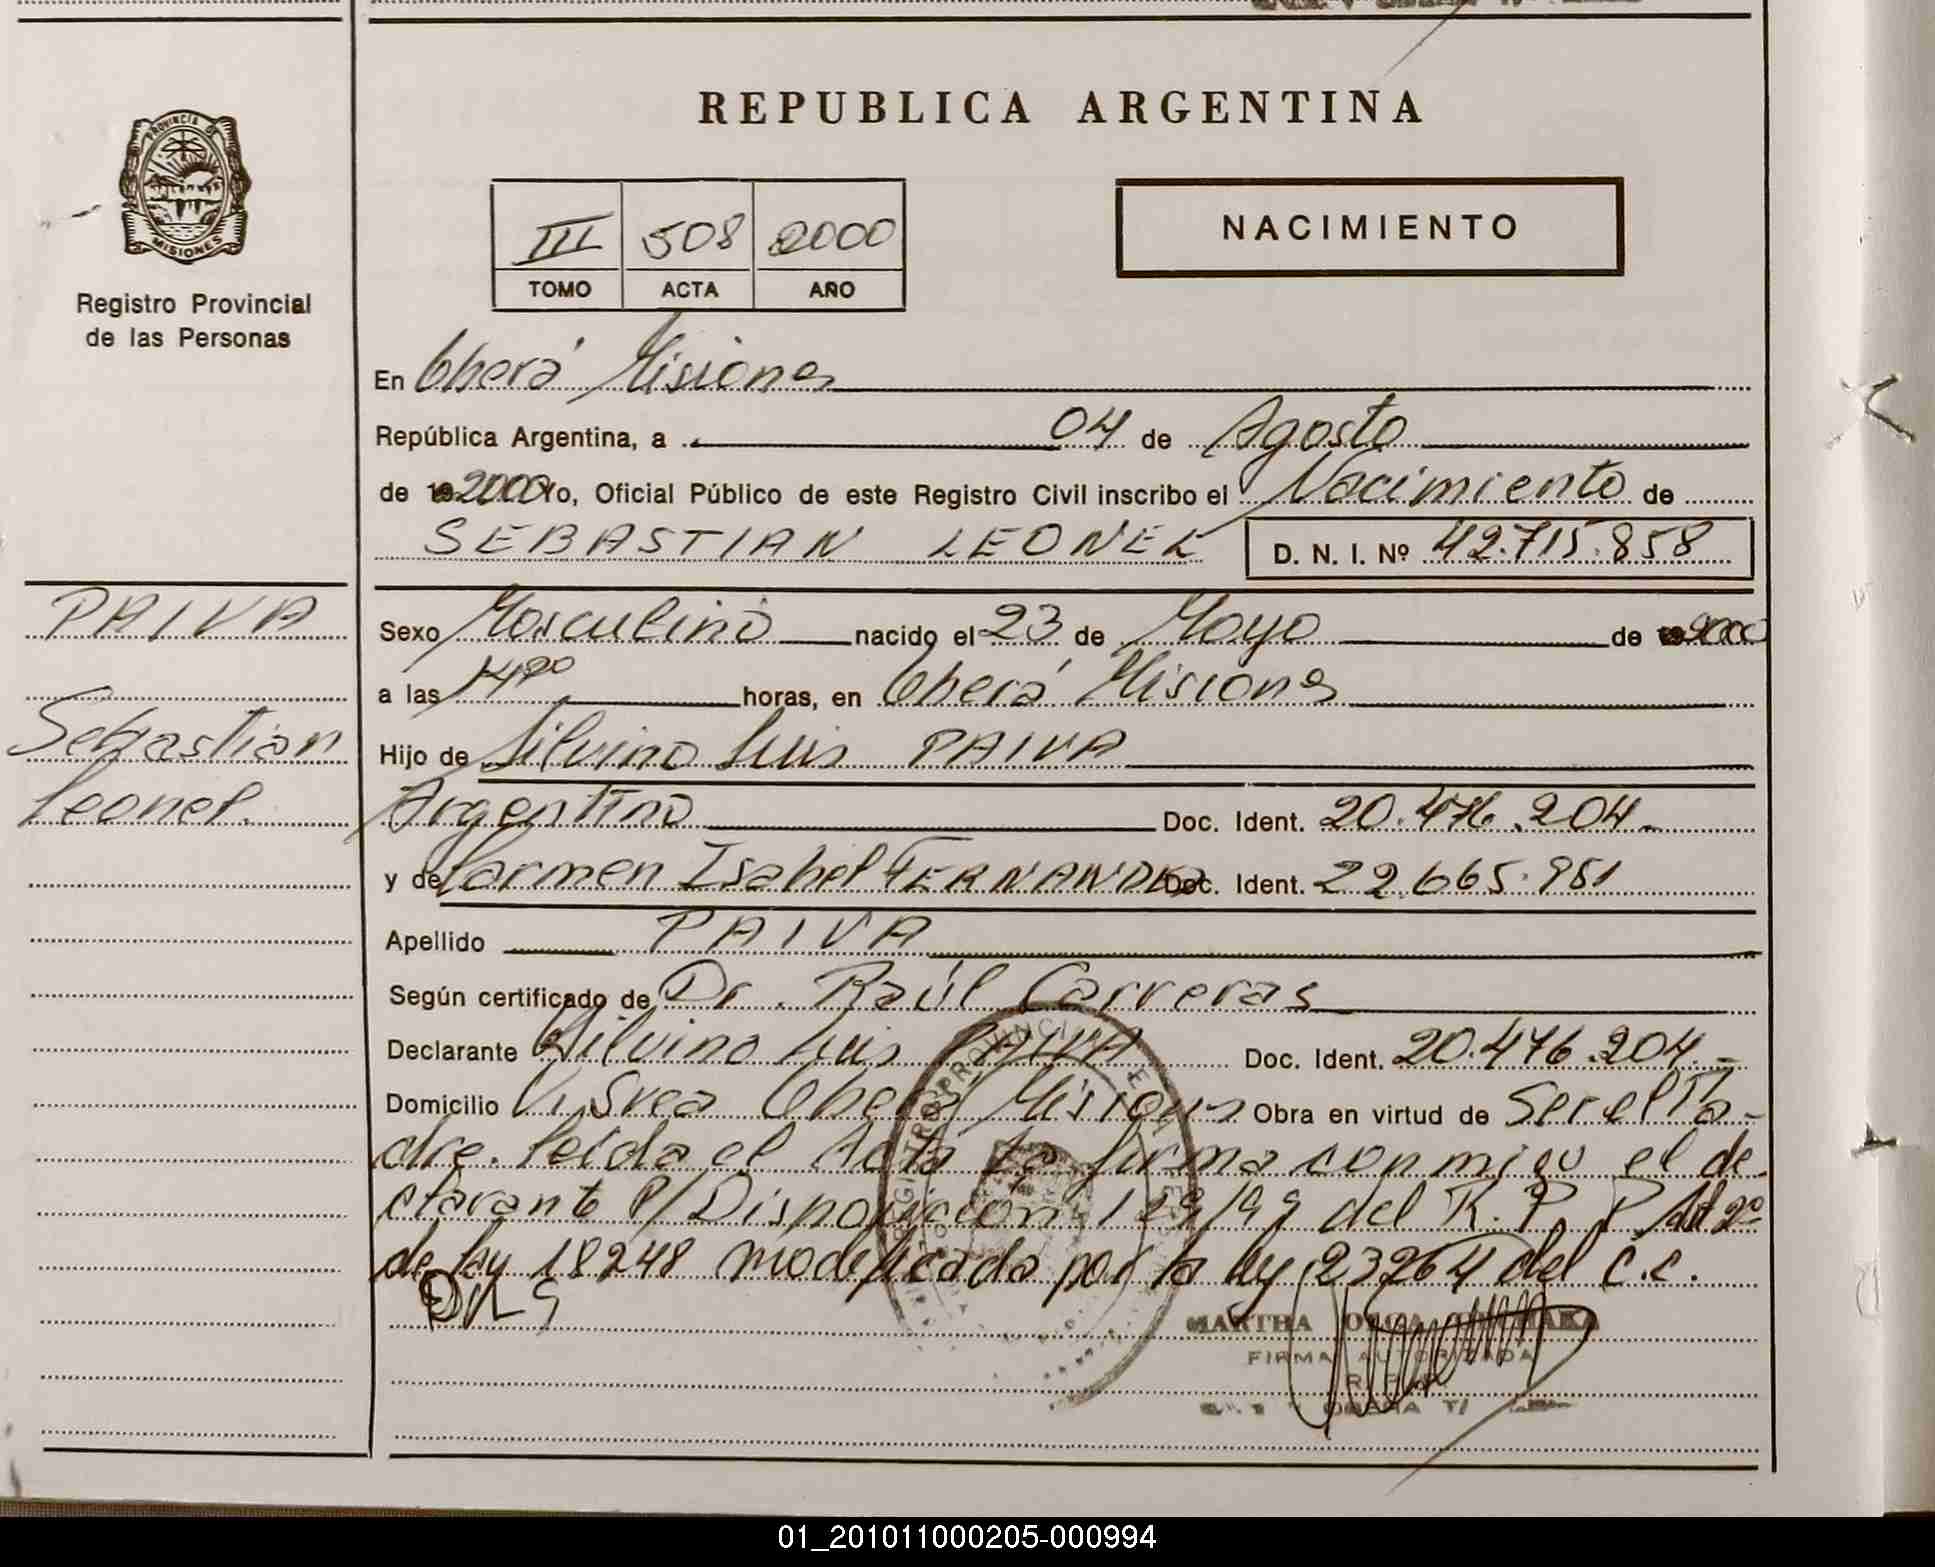 PROVINCIA DE
MISIONES
Registro Provincial
de las Personas
REPUBLICA ARGENTINA
III 508 2000
TOMO ACTA AÑO
NACIMIENTO
En Oberá Misiones
República Argentina, a 04 de Agosto
de 2000 Yo, Oficial Público de este Registro Civil inscribo el Nacimiento de
SEBASTIAN LEONEL D. N. I. Nº 42.715.858
PAIVA
Sebastian
Leonel.
Sexo Masculino nacido el 23 de Mayo de 2000
a las horas, en Oberá Misiones
Hijo de Silvino Luis PAIVA
Argentino Doc. Ident. 20.476.204.
y de Carmen Isabel FERNANDEZ Doc. Ident. 22.665.951
Apellido PAIVA
Según certificado de Dr. Raúl Carreras
Declarante Silvino Luis PAIVA Doc. Ident. 20.476.204.-
Domicilio V. Svea Oberá Misiones Obra en virtud de Ser el Pa-
dre. Leída el Acta la firma conmigo el de-
clarante P/Disposición 129/99 del R. P. P. Art 2º
de ley 18248 modificada por la ley 23264 del C.C.
MARTHA OLGA
FIRMA AUTORIZADA
01_201011000205-000994